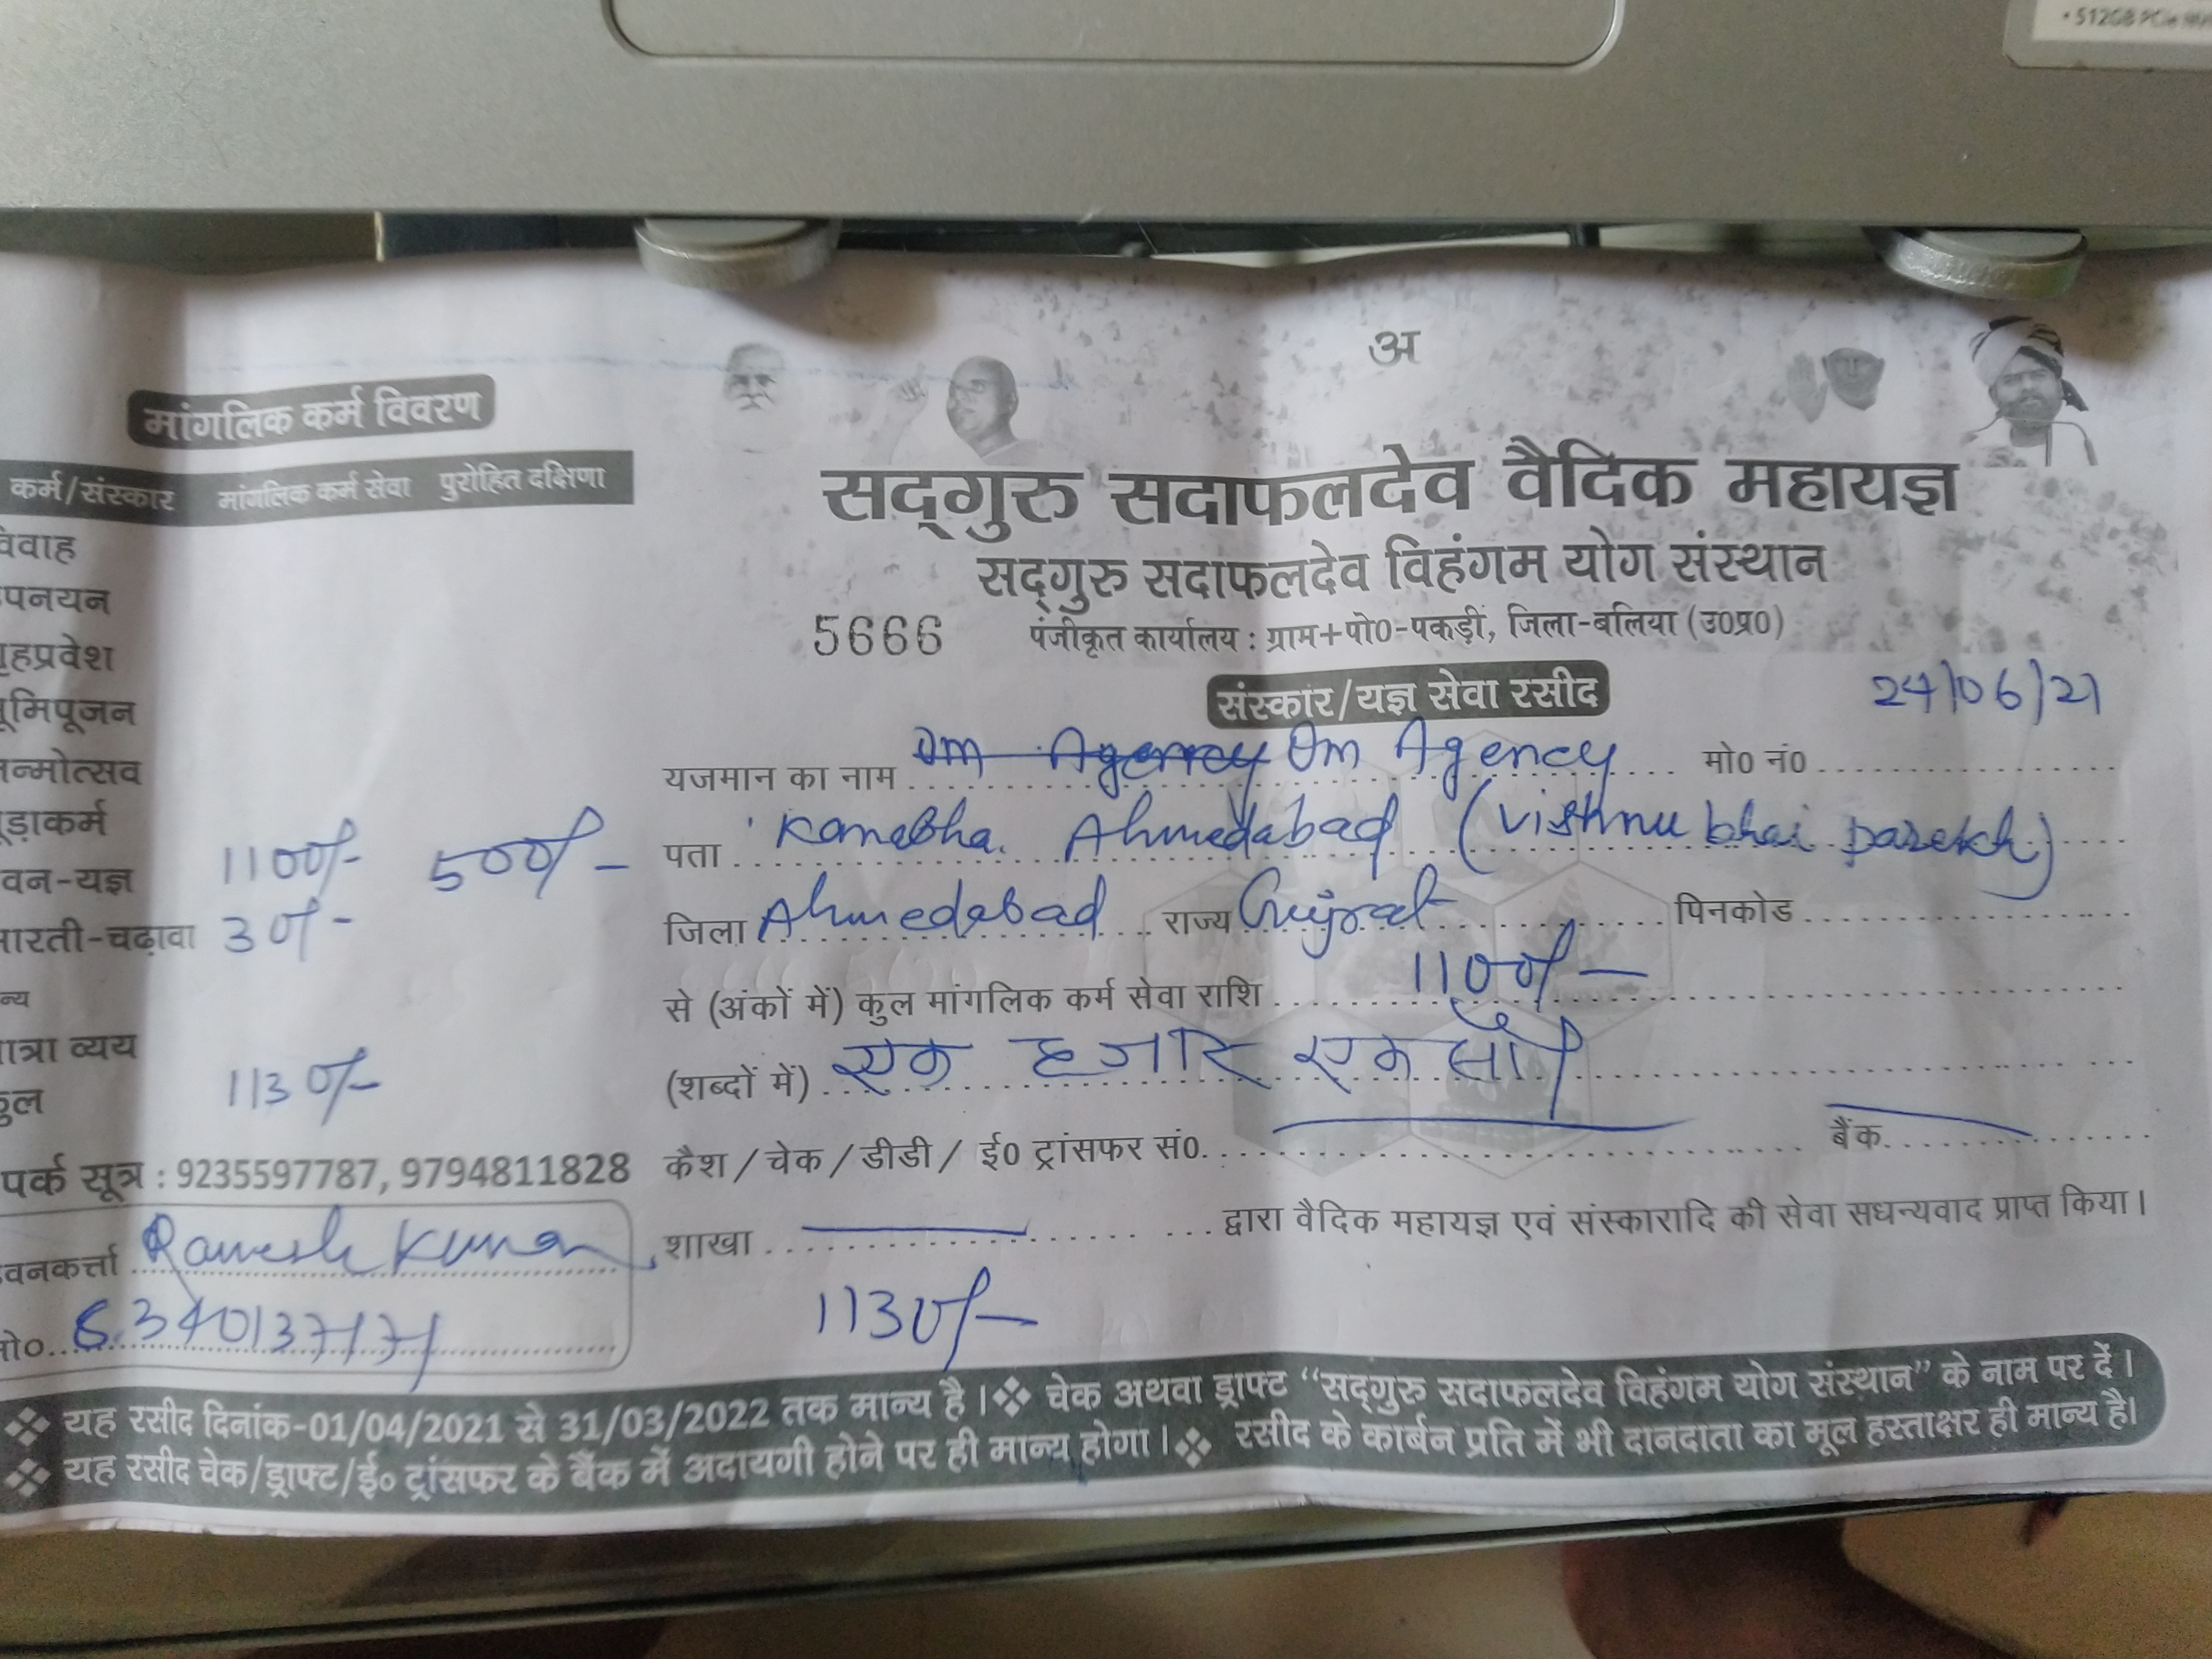 • 512GB PCIe
अ
मांगलिक कर्म विवरण
कर्म/संस्कार मांगलिक कर्म सेवा पुरोहित दक्षिणा
विवाह
पनयन
हप्रवेश
मिपूजन
न्मोत्सव
ड़ाकर्म
वन-यज्ञ 1100/- 500/-
आरती-चढ़ावा 30/-
न्य
ात्रा व्यय
कुल 1130/-
पर्क सूत्र : 9235597787, 9794811828
वनकर्त्ता Ramesh Kumar
मो०
सद्गुरु सदाफलदेव वैदिक महायज्ञ
सद्गुरु सदाफलदेव विहंगम योग संस्थान
5666 पंजीकृत कार्यालय : ग्राम+पो0-पकड़ी, जिला-बलिया (उ0प्र0)
संस्कार/यज्ञ सेवा रसीद 24/06/21
यजमान का नाम Om Agency Om Agency मो0 नं0
पता Kanabha. Ahmedabad (Vishnu bhai parekh)
जिला Ahmedabad राज्य Gujrat पिनकोड
से (अंकों में) कुल मांगलिक कर्म सेवा राशि 1100/-
(शब्दों में) एक हजार एक सौ
कैश / चेक / डीडी / ई0 ट्रांसफर सं0. बैंक
शाखा द्वारा वैदिक महायज्ञ एवं संस्कारादि की सेवा सधन्यवाद प्राप्त किया।
1130/-
❖ यह रसीद दिनांक-01/04/2021 से 31/03/2022 तक मान्य है। ❖ चेक अथवा ड्राफ्ट “सद्गुरु सदाफलदेव विहंगम योग संस्थान” के नाम पर दें।
❖ यह रसीद चेक/ड्राफ्ट/ई० ट्रांसफर के बैंक में अदायगी होने पर ही मान्य होगा। ❖ रसीद के कार्बन प्रति में भी दानदाता का मूल हस्ताक्षर ही मान्य है।